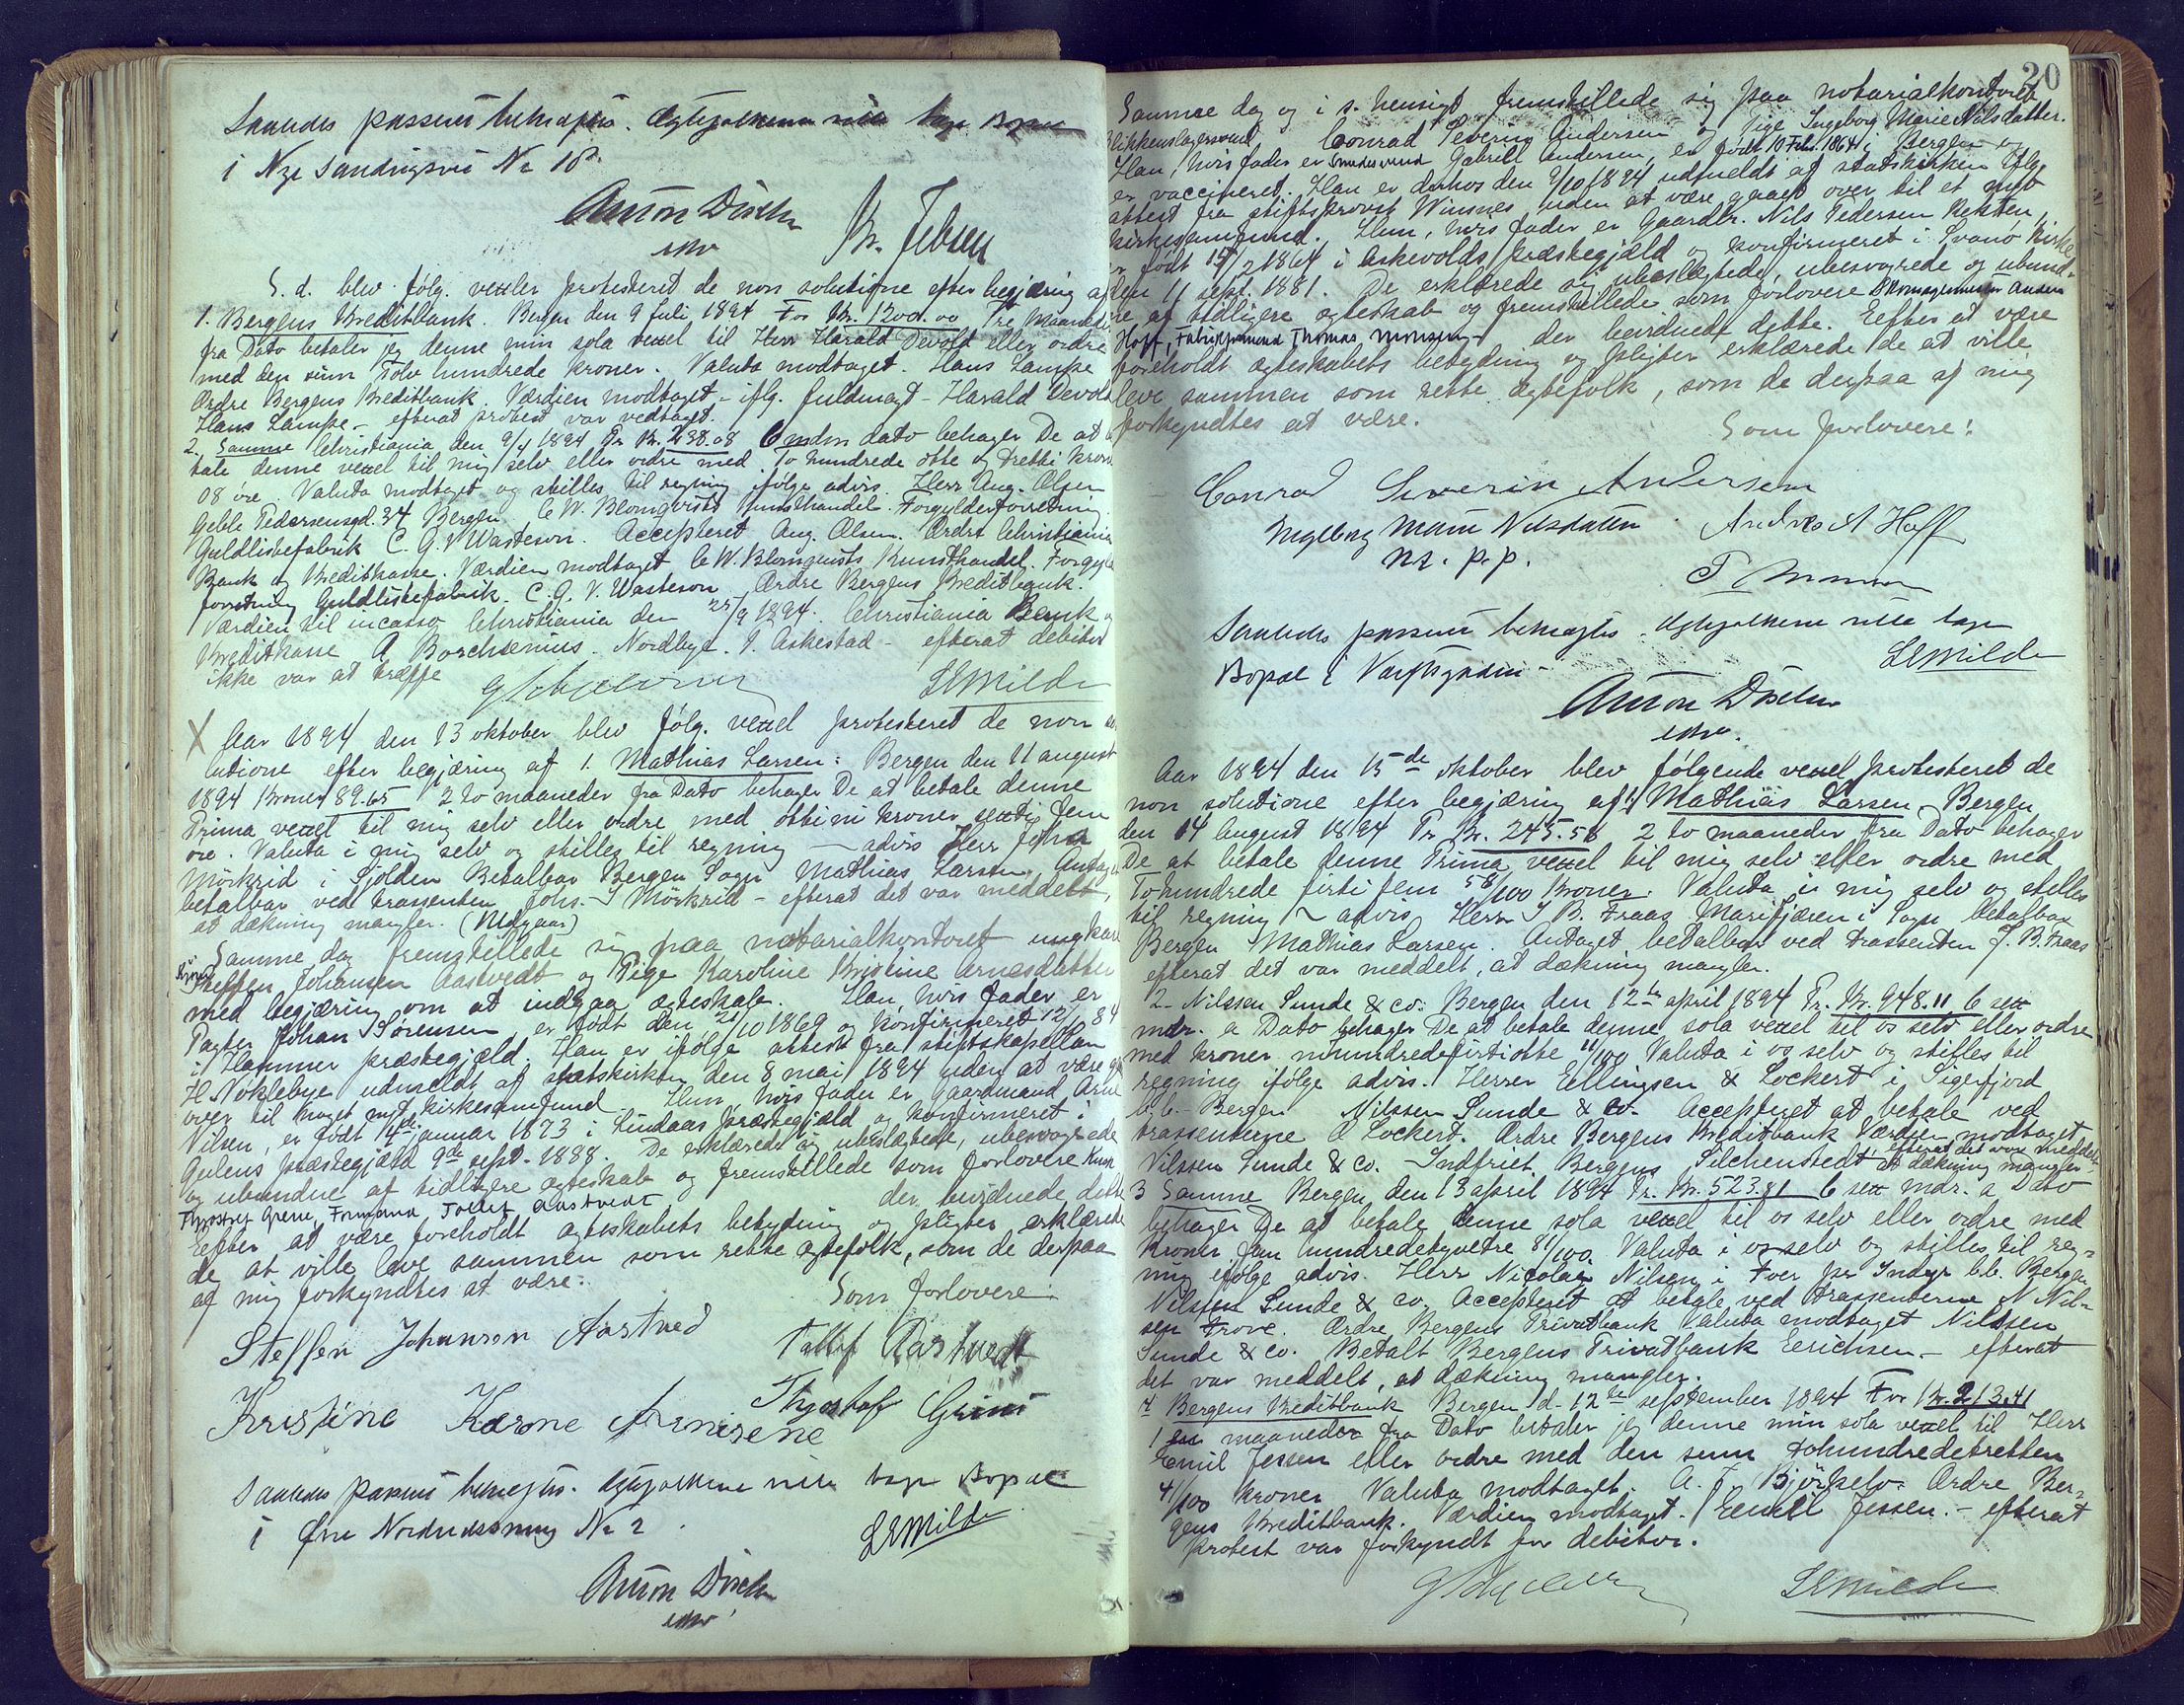 Saaledes passeret bekræftes. Ægtefolkene ville tage Bopæl
i Nye Sandvigsvei No 18
Kr. Jebsen
S. d. blev følg. vexler protesteret de non solutione efter begjæring af
1. Bergens Kreditbank. Bergen den 9 Juli 1894 For Kr. 1200.00 Tre Maaneder
fra Dato betaler jeg denne min sola vexel til Herr Harald Devold eller ordre
med den sum Tolv hundrede kroner. Valuta modtaget. Hans Lampe
Ordre Bergens Kreditbank. Værdien modtaget - iflg. fuldmagt - Harald Devold
Hans Lampe - efterat protest var vedtaget.
2. Samme Christiania den 9/4 1894 Pr Kr. 238.08 6 mdr dato behager De at be
tale denne vexel til mig selv eller ordre med To hundrede otte og tretti kroner
08 øre. Valuta modtaget og stilles til regning ifølge advis. Herr Aug. Olsen
Geble Pedersensgd. 34 Bergen. C W. Blomqvists Kunsthandel. Forgylderforretning.
Guldlistefabrik C. G. V Wasteson. Accepteret Aug. Olsen. Ordre Christiania
Bank og Kreditkasse. Værdien modtaget C W. Blomqvists Kunsthandel. Forgylder
forretning Guldlistefabrik. C. G. V. Wasteson Ordre Bergens Kreditbank.
Værdien til incasso Christiania den 25/9 1894. Christiania Bank og
Kreditkasse A Borchsenius. Nordbye. P. Askestad - efterat debitor
ikke var at træffe
LEMilde
X Aar 1894 den 13 oktober blev følg. vexel protesteret de non so
lutione efter begjæring af 1. Mathias Larsen: Bergen den 11 august
1894 Kroner 89.65 2 to maaneder fra Dato behager De at betale denne
Prima vexel til mig selv eller ordre med ottini kroner sexti fem
øre. Valuta i mig selv og stilles til regning - advis Herr Johs
Mörkrid i Sjolden Betalbar Bergen Sogn Mathias Larsen. Antaget
betalbar ved trassenten Johs. I Mörkrid - efterat det var meddelt,
at dækning mangler. (Udgaar)
Samme dag fremstillede sig paa notarialkontoret ungkarl
Steffen Johansen Aastvedt og Pige Karoline Kristine Arnesdatter
med begjæring om at indgaa ægteskab. Han, hvis fader er
Pagter Johan Sörensen, er født den 21/10 1869 og konfirmeret 12/10 84
i Hammer præstegjæld. Han er ifølge attest fra stiftskapellan
H. Nöklebye udmeldt af statskirken den 8 mai 1894 uden at være gaaet
over til noget nyt kirkesamfund. Hun, hvis fader er Gaardmand Arne
Nilsen, er født 14de januar 1873 i Lindaas præstegjæld og konfirmeret i
Gulens præstegjæld 9de sept. 1888. De erklærede sig ubeslægtede, ubesvogrede
og ubundne af tidligere ægteskab og fremstillede som forlovere
Formand Tollef Aastvedt der bevidnede dette
Eefter at være foreholdt ægteskabets betydning og pligter erklærede
de at ville leve sammen som rette ægtefolk, som de derpaa
af mig forkyndtes at være.
Som forlovere:
Steffen Johansen Aastved
Tollef Aastvedt
Kristine Karone Arnisene
Saaledes passeret bekræftes. Ægtefolkene ville tage Bopæl
i Øvre No 2
LEMilde
20
Samme dag og i s. hensigt fremstillede sig paa notarialkontoret
Blikkenslagersvend Conrad Severin Andersen og pige Ingeborg Marie Nilsdatter.
Han, hvis fader er Smedesvend Gabriell Andersen, er født 10 Febr. 1864 i Bergen og
er vaccineret. Han er derhos den 9/10 1894 udmeldt af statskirken iflg.
attest fra stiftsprovst Winsnes uden at være gaaet over til et nyt
kirkesamfund. Hun, hvis fader er Gaardbr. Nils Pedersen
er født 15/2 1864 i Askevolds præstegjæld og konfirmeret i Svanö kirke
den 11 sept. 1881. De erklærede sig ubeslægtede, ubesvogrede og ubund-
ne af tidligere ægteskab og fremstillede som forlovere Skomagermester Anders
Hoff, Thomas Monsen der bevidnede dette. Eefter at være
foreholdt ægteskabets betydning og pligter erklærede de at ville
leve sammen som rette ægtefolk, som de derpaa af mig
forkyndtes at være.
Som forlovere:
Conrad Severin Andersen
Ingeborg Marie Nilsdatter Andreas A Hoff
m. p. p.
Saaledes passeret bekræftes. Ægtefolkene ville tage
Bopæl i
LEMilde
Aar 1894 den 15de oktober blev følgende vexel protesteret de
non solutione efter begjæring af: 1/ Mathias Larsen, Bergen
den 14 August 1894 Pr Kr. 245.58 2 to maaneder fra Dato behager
De at betale denne Prima vexel til mig selv eller ordre med
Tohundrede firti fem 58/100 Kroner. Valuta i mig selv og stilles
til regning - advis Herr J B. Fraas Marifjæren i Sogn betalbar
Bergen Mathias Larsen. Antaget betalbar ved trassenten J. B. Fraas
efterat det var meddelt, at dækning mangler.
2. Nilssen Sunde & Co: Bergen den 12te april 1894 Pr. Kr. 948.11 6 sex
mdr. a Dato behager De at betale denne sola vexel til os selv eller ordre
med kroner nihundredefirtiotte 11/100 Valuta i os selv og stilles til
regning ifølge advis. Herrer Eellingsen & Lockert i Sigerfjord
b.b. Bergen Nilssen Sunde & Co. Accepteret at betale ved
trassenterne Lockert. Ordre Bergens Kreditbank Værdien modtaget
Nilssen Sunde & Co. Indfriet Bergens Silchenstedt efterat det var meddelt, at dækning mangler
3 Samme Bergen den 13 april 1894 Pr. Kr. 523.81 6 sex mdr. a Dato
behager De at betale denne sola vexel til os selv eller ordre med
Kroner fem hundredetyvetre 81/100. Valuta i os selv og stilles til reg-
ning ifølge advis. Herr Nicolai Nilsen i Tver per Indyr b.b. Bergen
Nilssen Sunde & Co. Accepteret at betale ved trassenterne N Nil-
sen Ordre Bergens Privatbank Valuta modtaget Nilssen
Sunde & Co. Betalt Bergens Privatbank Eerichsen. - efterat
det var meddelt, at dækning mangler.
4 Bergens Kreditbank Bergen d. 12te september 1894 For Kr. 213.41
1 en maaneder fra Dato betaler jeg denne min sola vexel til Herr
Eemil Jessen eller ordre med den sum tohundredetretten
41/100 kroner Valuta modtaget. A. J. Björkelv. Ordre Ber-
gens Kreditbank. Værdien modtaget. Eemil Jessen. - efterat
protest var forkyndt for debitor.
LEMilde